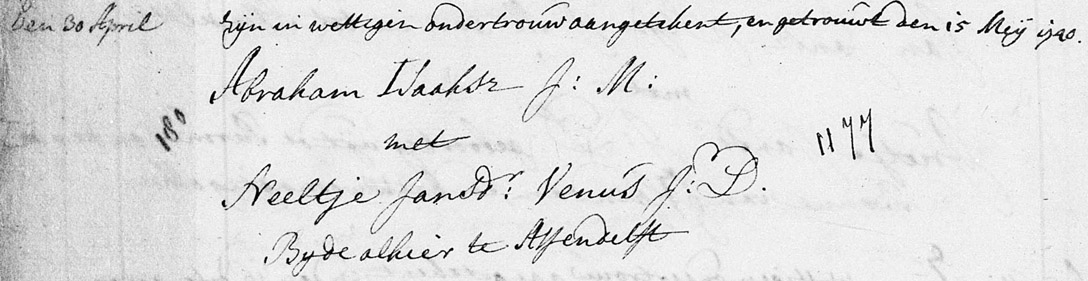 Den 30 April zijn in wettigen ondertrouw aangetekent, en getrouwt den 15 Meij 1740.
Abraham Isaaksz J: M:
180
met
1177
Neeltje Jansdr. Venus J: D.
Byde alhier te Assendelft